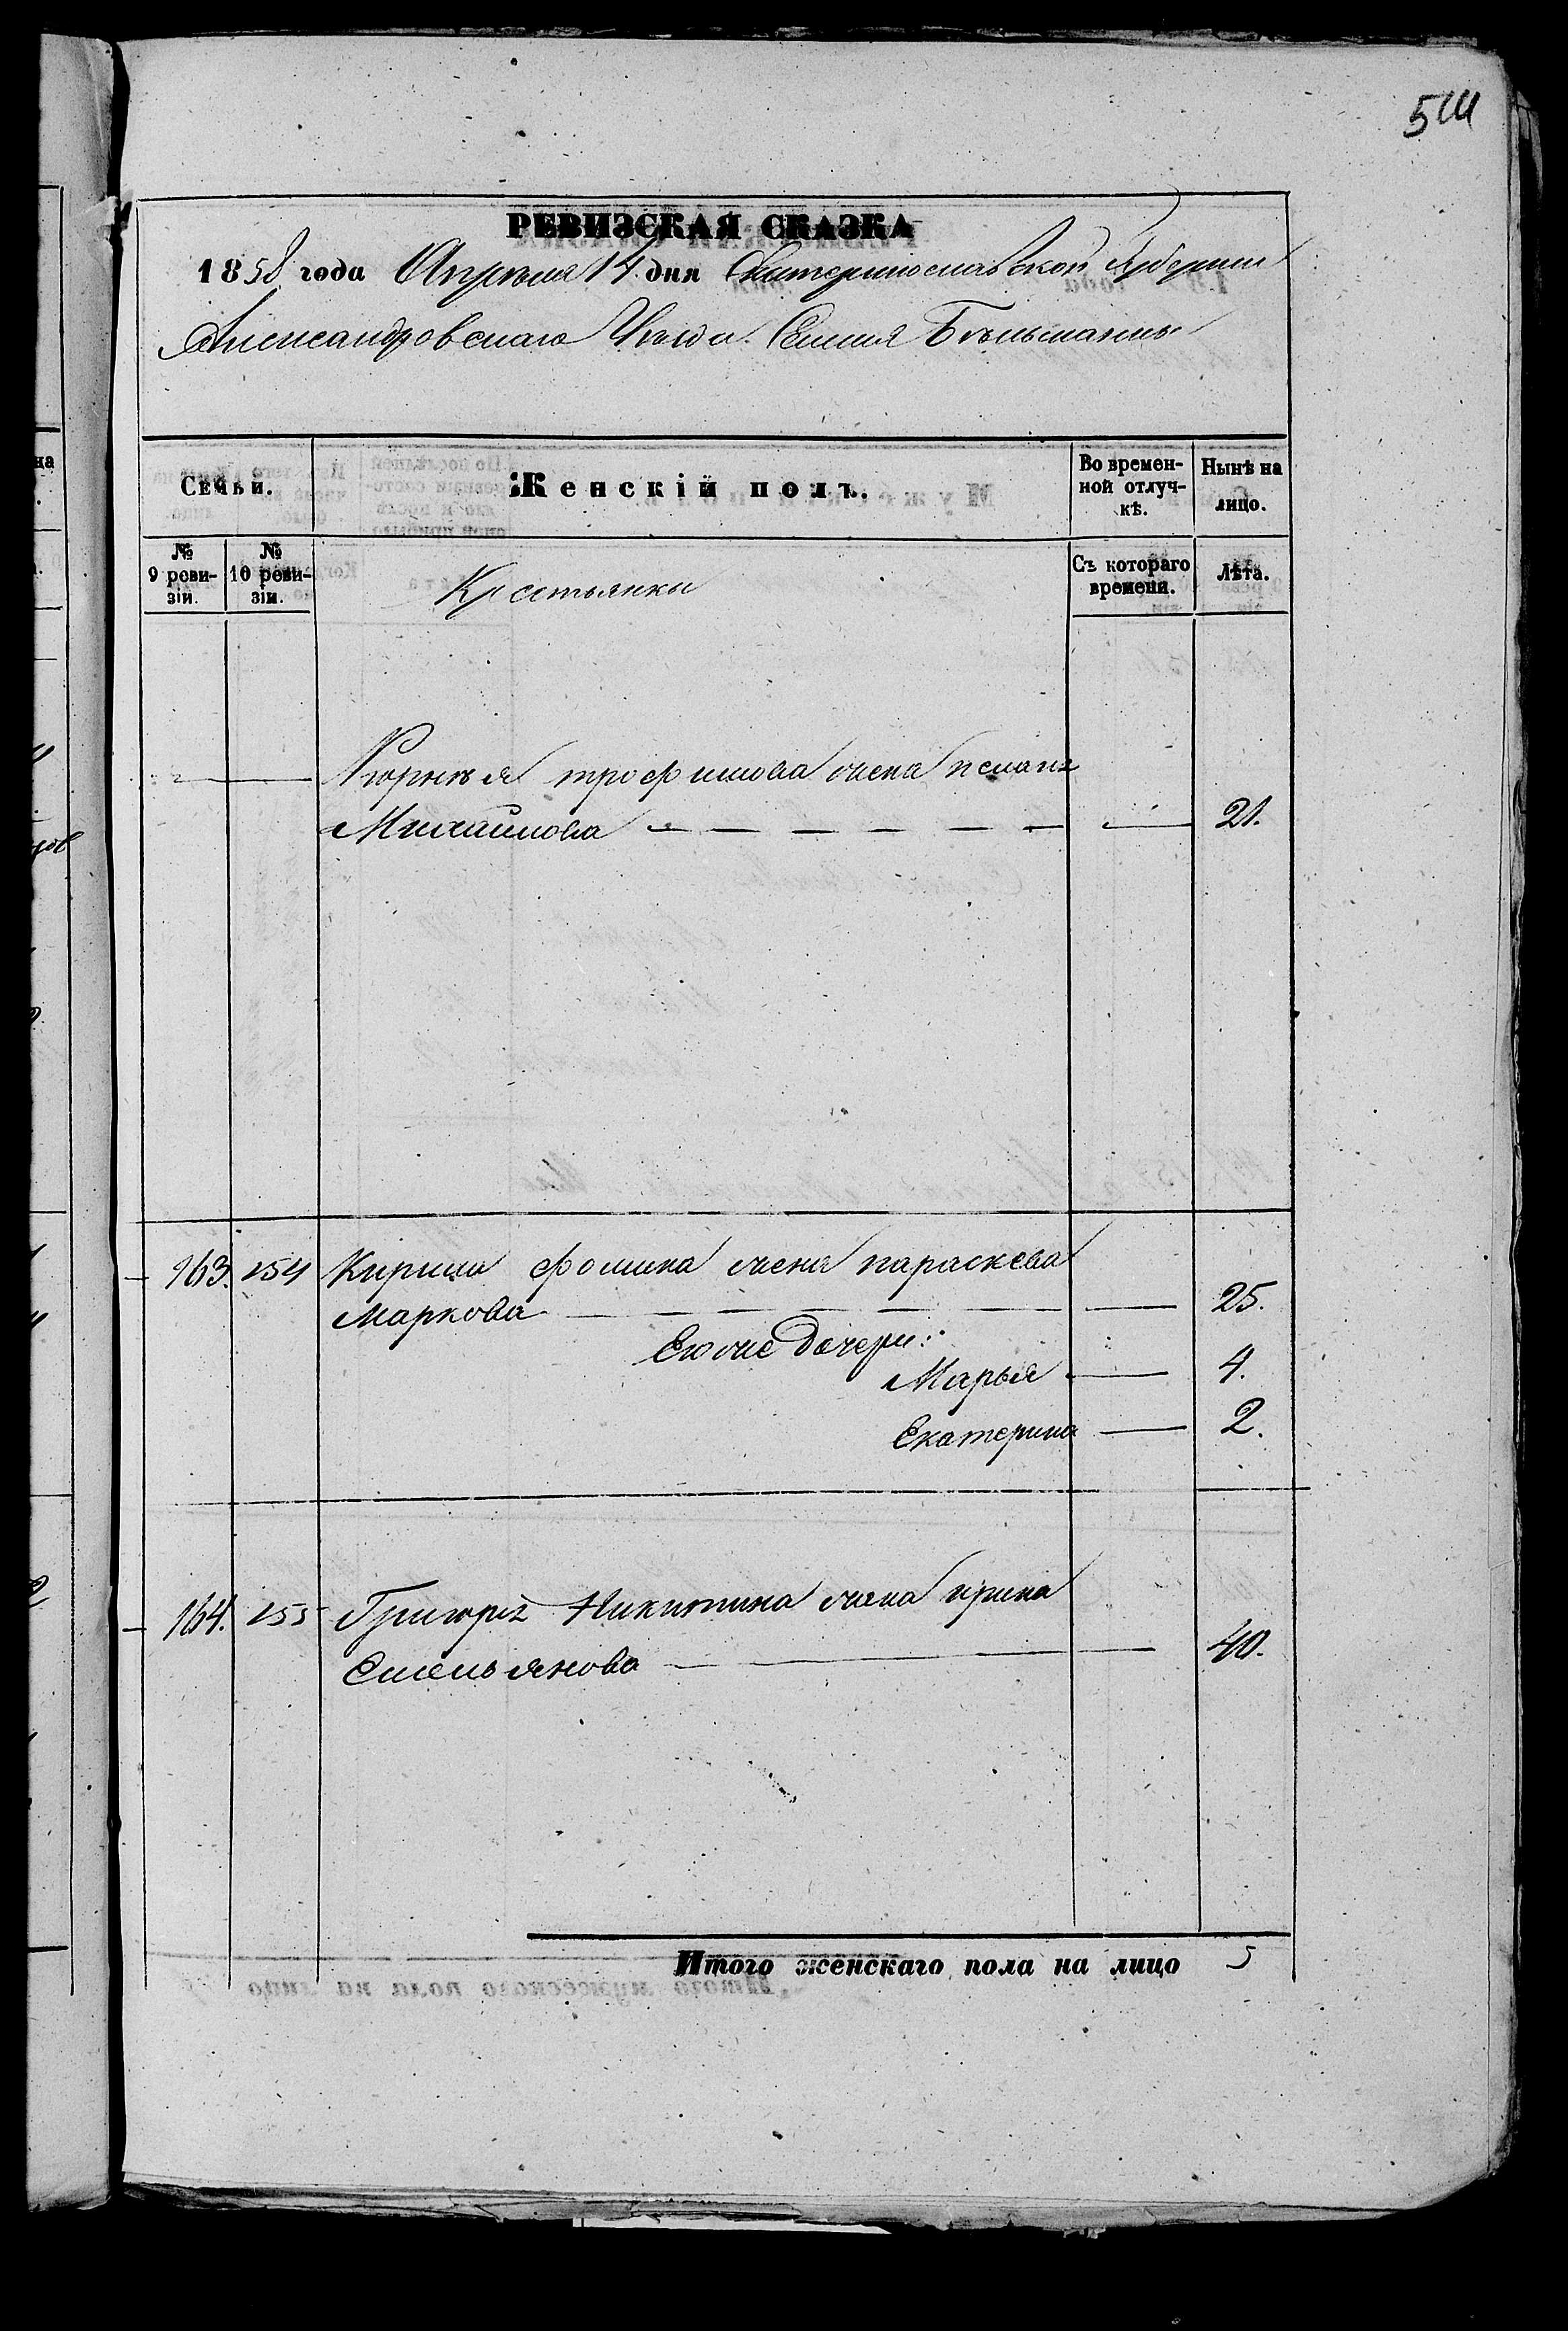 РЕВИЗСКАЯ СКАЗКА
1858 года Апреля 14 дня Екатеринославской Губернии
Александровскаго Уезда Селения Бѣльманки
Семьи.
Женскій полъ.
Во времен-
ной отлуч-
кѣ.
Нынѣ на
лицо.
№
9 реви-
зіи.
№
10 реви-
зіи.
Крестьянки
Съ котораго
времени.
Лѣта.
Корнѣя трофимова жена
Михаилова 21.
163. 154 Кирила фомина жена параскева
Маркова 25.
Егоже дочери:
Марья 4.
Екатерина 2.
164. 155 Григорiя Никитина жена ирина
Емельянова 40.
Итого женскаго пола на лицо 5